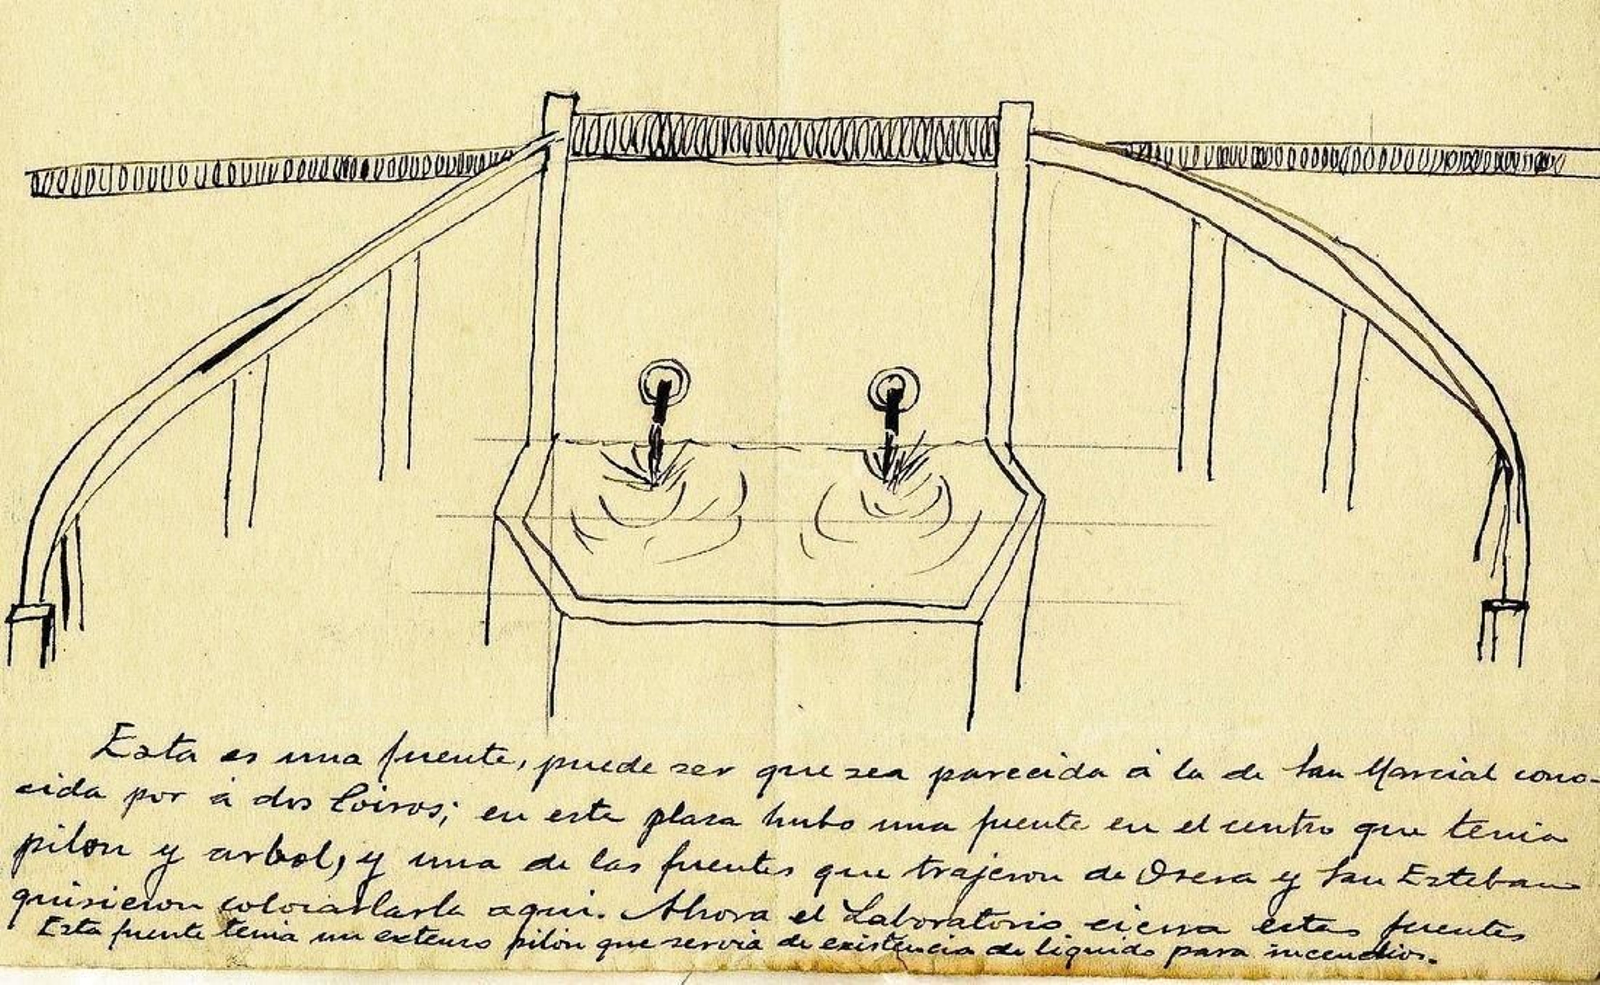 Esta es una fuente, puede ser que sea parecida á la de San Marcial cono-
cida por á dos Coiros; en esta plaza hubo una fuente en el centro que tenia
pilon y arbol, y una de las fuentes que trajeron de Osera y San Esteban
quisieron colocarla aqui. Ahora el Laboratorio cierra estas fuentes
Esta fuente tenia un extenso pilón que servia de existencia de liquido para incendios.